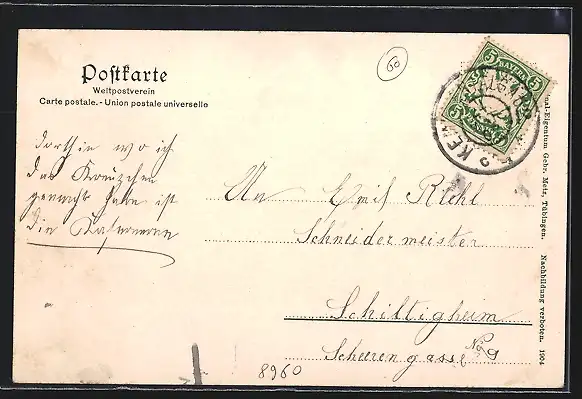 Postkarte
Weltpostverein
Carte postale. - Union postale universelle
60
5 BAYERN 5
5 PFENNIG 5
KEM
dorthin wo ich
das Kreuzchen
gemacht habe ist
die Kasernene
An Emil Riehl
Schneidermeister
Schiltigheim
Scheerengasse No 9
8960
Eigentum Gebr. Metz, Tübingen. Nachbildung verboten. 1904